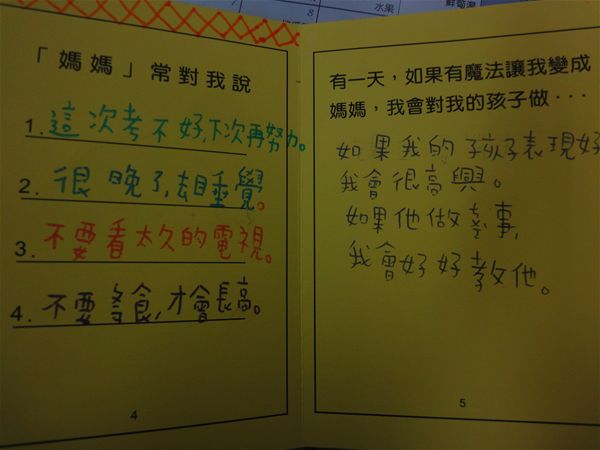 8
水果
「媽媽」常對我說
1. 這次考不好,下次再努力。
2. 很晚了,去睡覺。
3. 不要看太久的電視。
4. 不要食,才會長高。
4
有一天,如果有魔法讓我變成
媽媽,我會對我的孩子做...
如果我的孩子表現好
我會很高興。
如果他做事,
我會好好教他。
5